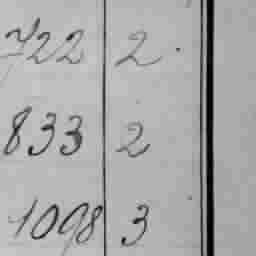 722 2
833 2
1098 3